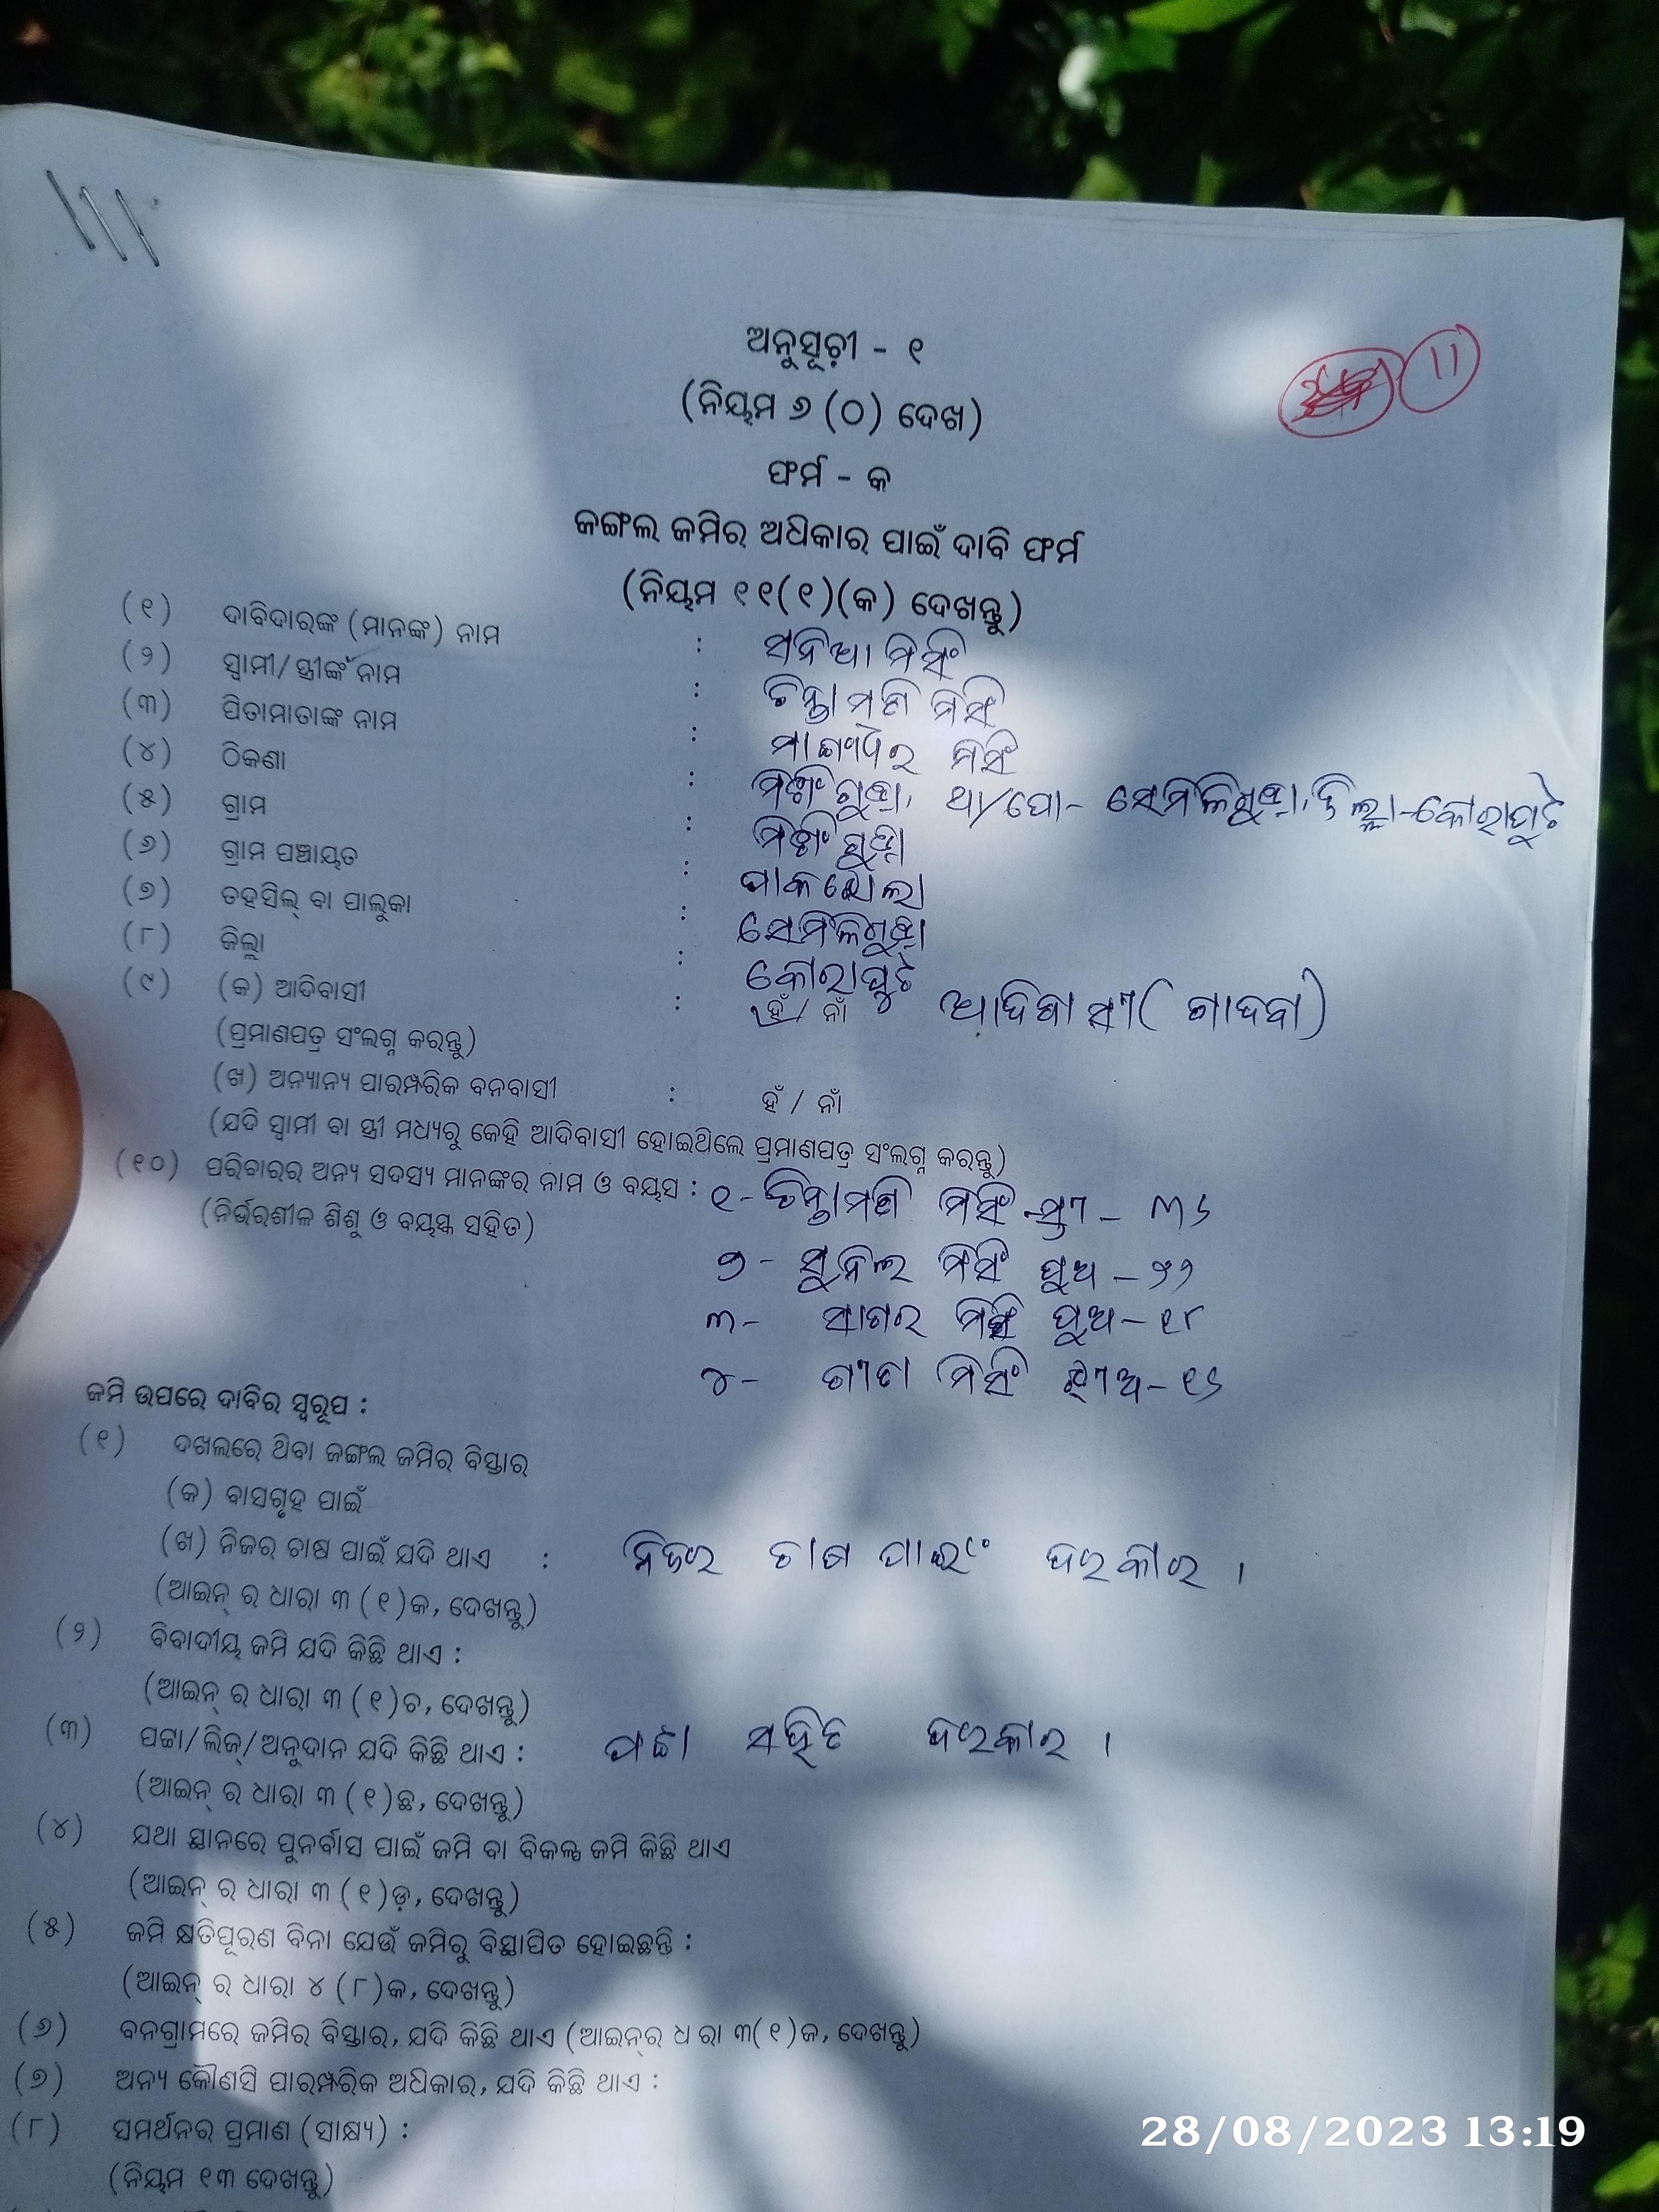 ଅନୁସୂଚୀ - ୧
11
(ନିୟମ ୬ (୦) ଦେଖ)
ଫର୍ମ - କ
ଜଙ୍ଗଲ ଜମିର ଅଧିକାର ପାଇଁ ଦାବି ଫର୍ମ
(ନିୟମ ୧୧(୧)(କ) ଦେଖନ୍ତୁ)
(୧) ଦାବିଦାରଙ୍କ (ମାନଙ୍କ) ନାମ : ସନିଆ ମିସିଂ
(୨) ସ୍ୱାମୀ/ସ୍ତ୍ରୀଙ୍କ ନାମ : ଚିନ୍ତାମଣି ମିସିଂ
(୩) ପିତାମାତାଙ୍କ ନାମ : ମିସିଂ
(୪) ଠିକଣା : ଥା/ପୋ- ସେମିଳିଗୁଡ଼ା, ଜିଲ୍ଲା-କୋରାପୁଟ
(୫) ଗ୍ରାମ :
(୬) ଗ୍ରାମ ପଞ୍ଚାୟତ : ପାକଝୋଲା
(୭) ତହସିଲ୍ ବା ପାଲୁକା : ସେମିଳିଗୁଡ଼ା
(୮) ଜିଲ୍ଲା : କୋରାପୁଟ
(୯) (କ) ଆଦିବାସୀ : ହଁ / ନାଁ ଆଦିବାସୀ (ଗାଦବା)
(ପ୍ରମାଣପତ୍ର ସଂଲଗ୍ନ କରନ୍ତୁ)
(ଖ) ଅନ୍ୟାନ୍ୟ ପାରମ୍ପରିକ ବନବାସୀ : ହଁ / ନାଁ
(ଯଦି ସ୍ୱାମୀ ବା ସ୍ତ୍ରୀ ମଧ୍ୟରୁ କେହି ଆଦିବାସୀ ହୋଇଥିଲେ ପ୍ରମାଣପତ୍ର ସଂଲଗ୍ନ କରନ୍ତୁ)
(୧୦) ପରିବାରର ଅନ୍ୟ ସଦସ୍ୟ ମାନଙ୍କର ନାମ ଓ ବୟସ : ୧- ଚିନ୍ତାମଣି ମିସିଂ -ସ୍ତ୍ରୀ - ୩୬
(ନିର୍ଭରଶୀଳ ଶିଶୁ ଓ ବୟସ୍କ ସହିତ)
୨- ସୁନିଲ ମିସିଂ ପୁଅ - ୨୨
୩- ସାଗର ମିସିଂ ପୁଅ - ୧୮
୪- ଗୀତା ମିସିଂ ଝୀଅ - ୧୬
ଜମି ଉପରେ ଦାବିର ସ୍ୱରୂପ :
(୧) ଦଖଲରେ ଥିବା ଜଙ୍ଗଲ ଜମିର ବିସ୍ତାର
(କ) ବାସଗୃହ ପାଇଁ
(ଖ) ନିଜର ଚାଷ ପାଇଁ ଯଦି ଥାଏ : ନିଜର ଚାଷ ପାଇଁ ଦରକାର ।
(ଆଇନ୍ ର ଧାରା ୩ (୧)କ, ଦେଖନ୍ତୁ)
(୨) ବିବାଦୀୟ ଜମି ଯଦି କିଛି ଥାଏ :
(ଆଇନ୍ ର ଧାରା ୩ (୧)ଚ, ଦେଖନ୍ତୁ)
(୩) ପଟ୍ଟା/ଲିଜ୍/ଅନୁଦାନ ଯଦି କିଛି ଥାଏ : ପଟ୍ଟା ସହିତ ଦରକାର ।
(ଆଇନ୍ ର ଧାରା ୩ (୧)ଛ, ଦେଖନ୍ତୁ)
(୪) ଯଥା ସ୍ଥାନରେ ପୁନର୍ବାସ ପାଇଁ ଜମି ବା ବିକଳ୍ପ ଜମି କିଛି ଥାଏ
(ଆଇନ୍ ର ଧାରା ୩ (୧)ଡ଼, ଦେଖନ୍ତୁ)
(୫) ଜମି କ୍ଷତିପୂରଣ ବିନା ଯେଉଁ ଜମିରୁ ବିସ୍ଥାପିତ ହୋଇଛନ୍ତି :
(ଆଇନ୍ ର ଧାରା ୪ (୮)କ, ଦେଖନ୍ତୁ)
(୬) ବନଗ୍ରାମରେ ଜମିର ବିସ୍ତାର, ଯଦି କିଛି ଥାଏ (ଆଇନ୍‌ର ଧ ରା ୩(୧)ଜ, ଦେଖନ୍ତୁ)
(୭) ଅନ୍ୟ କୌଣସି ପାରମ୍ପରିକ ଅଧିକାର, ଯଦି କିଛି ଥାଏ :
(୮) ସମର୍ଥନର ପ୍ରମାଣ (ସାକ୍ଷ୍ୟ) :
(ନିୟମ ୧୩ ଦେଖନ୍ତୁ)
28/08/2023 13:19